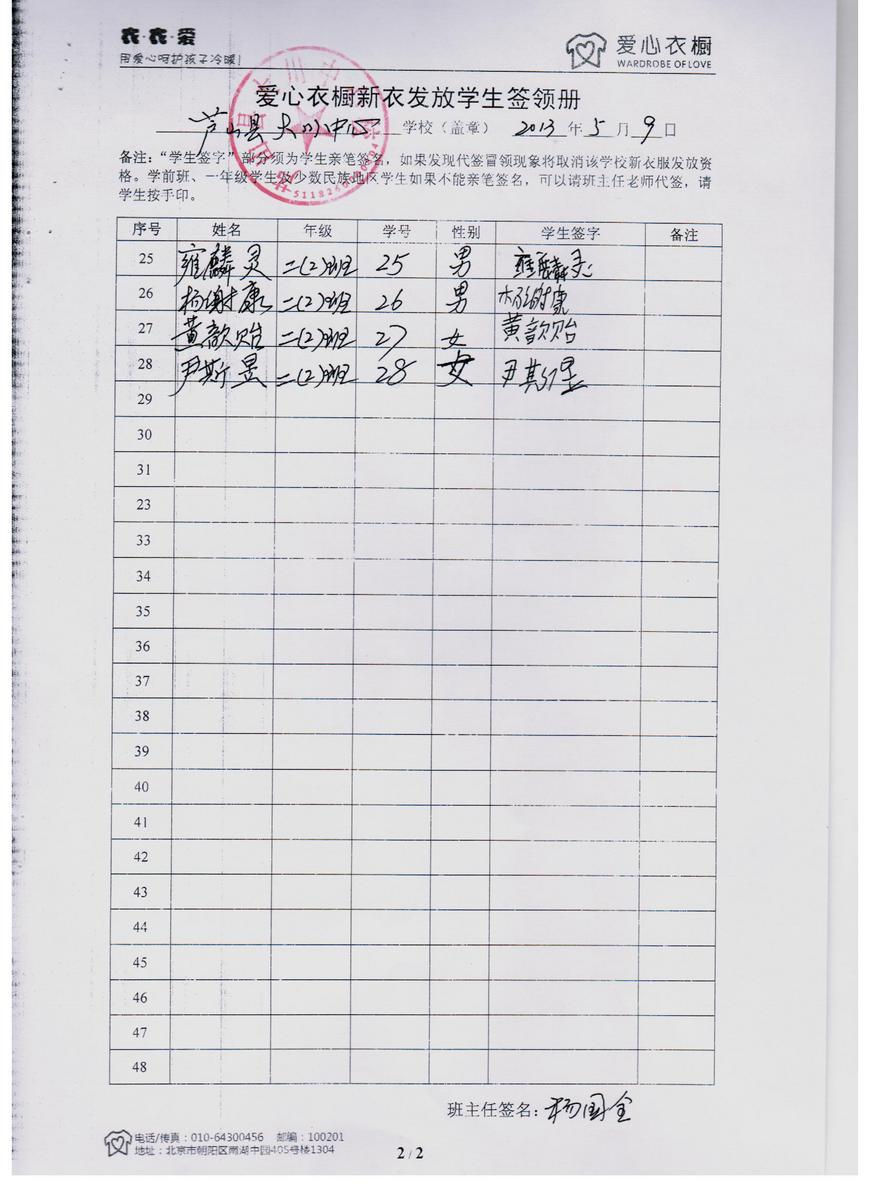 衣·衣·爱
用爱心呵护孩子冷暖!
爱心衣橱
WARDROBE OF LOVE
爱心衣橱新衣发放学生签领册
芦山县大川中心 学校（盖章） 2013 年 5 月 9 日
备注：“学生签字”部分须为学生亲笔签名，如果发现代签冒领现象将取消该学校新衣服发放资
格。学前班、一年级学生及少数民族地区学生如果不能亲笔签名，可以请班主任老师代签，请
学生按手印。
序号 姓名 年级 学号 性别 学生签字 备注
25 雍麟灵 二(2)班 25 男 雍麟灵
26 杨谢康 二(2)班 26 男 杨谢康
27 黄歆贻 二(2)班 27 女 黄歆贻
28 尹斯昱 二(2)班 28 女 尹斯昱
29
30
31
23
33
34
35
36
37
38
39
40
41
42
43
44
45
46
47
48
班主任签名：杨国全
电话/传真：010-64300456 邮编：100201
地址：北京市朝阳区南湖中园405号楼1304
2 / 2